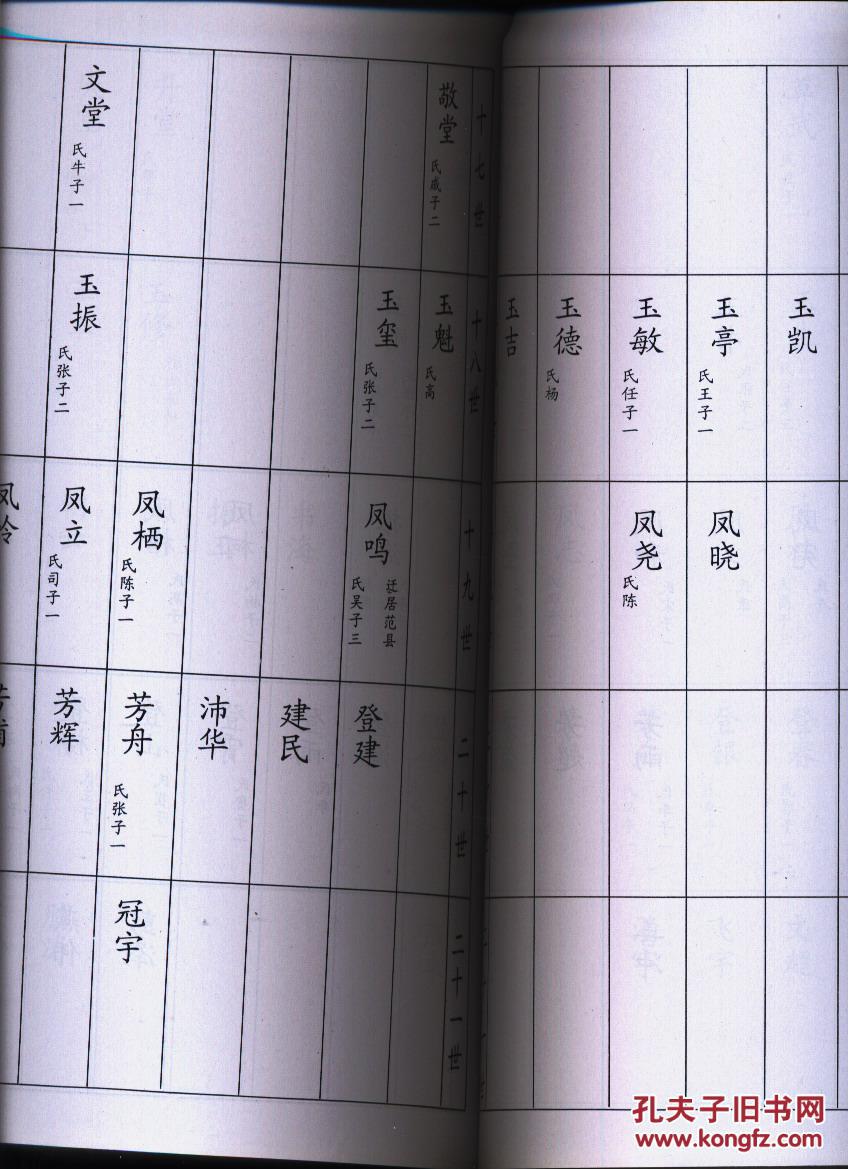 玉凯
玉亭
氏王子一
玉敏
氏任子一
玉德
氏杨
玉吉
凤晓
凤尧
氏陈
十七世
敬堂
氏戚子二
文堂
氏牛子一
十八世
玉魁
氏高
玉玺
氏张子二
玉振
氏张子二
十九世
凤鸣
迁居范县
氏吴子三
凤栖
氏陈子一
凤立
氏司子一
二十世
登建
建民
沛华
芳舟
氏张子一
芳辉
二十一世
冠宇
孔夫子旧书网
www.kongfz.com